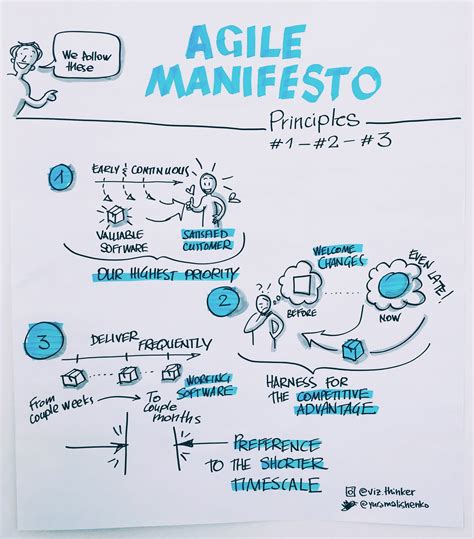 We follow
these
AGILE
MANIFESTO
Principles
#1-#2-#3
1
EARLY & CONTINUOUS
VALUABLE
SOFTWARE
SATISFIED
CUSTOMER
OUR HIGHEST PRIORITY
2
WELCOME
CHANGES
EVEN LATE!
BEFORE
NOW
HARNESS FOR
THE COMPETITIVE
ADVANTAGE
3
DELIVER FREQUENTLY
WORKING
SOFTWARE
From
couple weeks
To
couple
months
PREFERENCE
TO THE SHORTER
TIMESCALE
@viz.thinker
@yuramalishenko